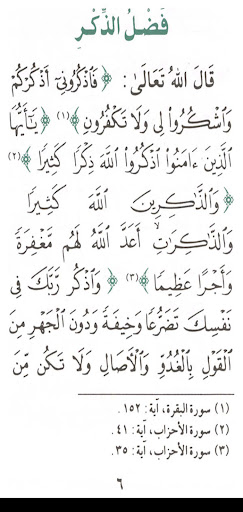 فَضْلُ الذِّكْرِ
قَالَ اللهُ تَعَالَى: ﴿فَاذْكُرُونِي أَذْكُرْكُمْ
وَاشْكُرُوا لِي وَلَا تَكْفُرُونِ﴾(١) ﴿يَٰٓأَيُّهَا
الَّذِينَ ءَامَنُوا اذْكُرُوا اللَّهَ ذِكْرًا كَثِيرًا﴾(٢)
﴿وَالذَّاكِرِينَ اللَّهَ كَثِيرًا
وَالذَّاكِرَاتِ أَعَدَّ اللَّهُ لَهُم مَّغْفِرَةً
وَأَجْرًا عَظِيمًا﴾(٣) ﴿وَاذْكُر رَّبَّكَ فِي
نَفْسِكَ تَضَرُّعًا وَخِيفَةً وَدُونَ الْجَهْرِ مِنَ
الْقَوْلِ بِالْغُدُوِّ وَالْآصَالِ وَلَا تَكُن مِّنَ
(١) سورة البقرة، آية: ١٥٢.
(٢) سورة الأحزاب، آية: ٤١.
(٣) سورة الأحزاب، آية: ٣٥.
٦